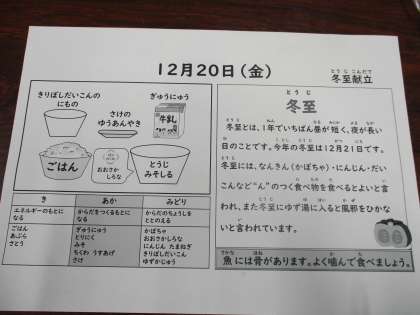 12月20日(金)
とうじこんだて
冬至献立
きりぼしだいこんの
にもの
さけの
ゆうあんやき
ぎゅうにゅう
牛乳
ごはん
おおさか
しろな
とうじ
みそしる
き
あか
みどり
エネルギーのもとに
なる
からだをつくるもとに
なる
からだのちょうしを
ととのえる
ごはん
あぶら
さとう
ぎゅうにゅう
とりにく
みそ
ちくわ うすあげ
さけ
かぼちゃ
おおさかしろな
にんじん たまねぎ
きりぼしだいこん
ゆずかじゅう
とうじ
冬至
冬至とは、1年でいちばん昼が短く、夜が長い
日のことです。今年の冬至は12月21日です。
冬至には、なんきん(かぼちゃ)・にんじん・だい
こんなど“ん”のつく食べ物を食べるとよいと言
われ、また冬至にゆず湯に入ると風邪をひかな
いと言われています。
魚には骨があります。よく噛んで食べましょう。